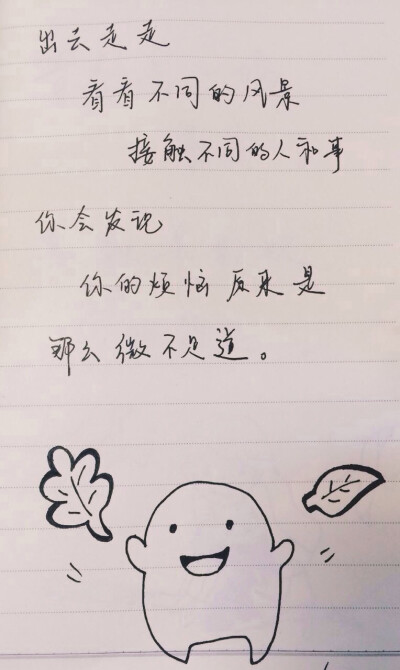 出去走走
看看不同的风景
接触不同的人和事
你会发现
你的烦恼原来是
那么微不足道。